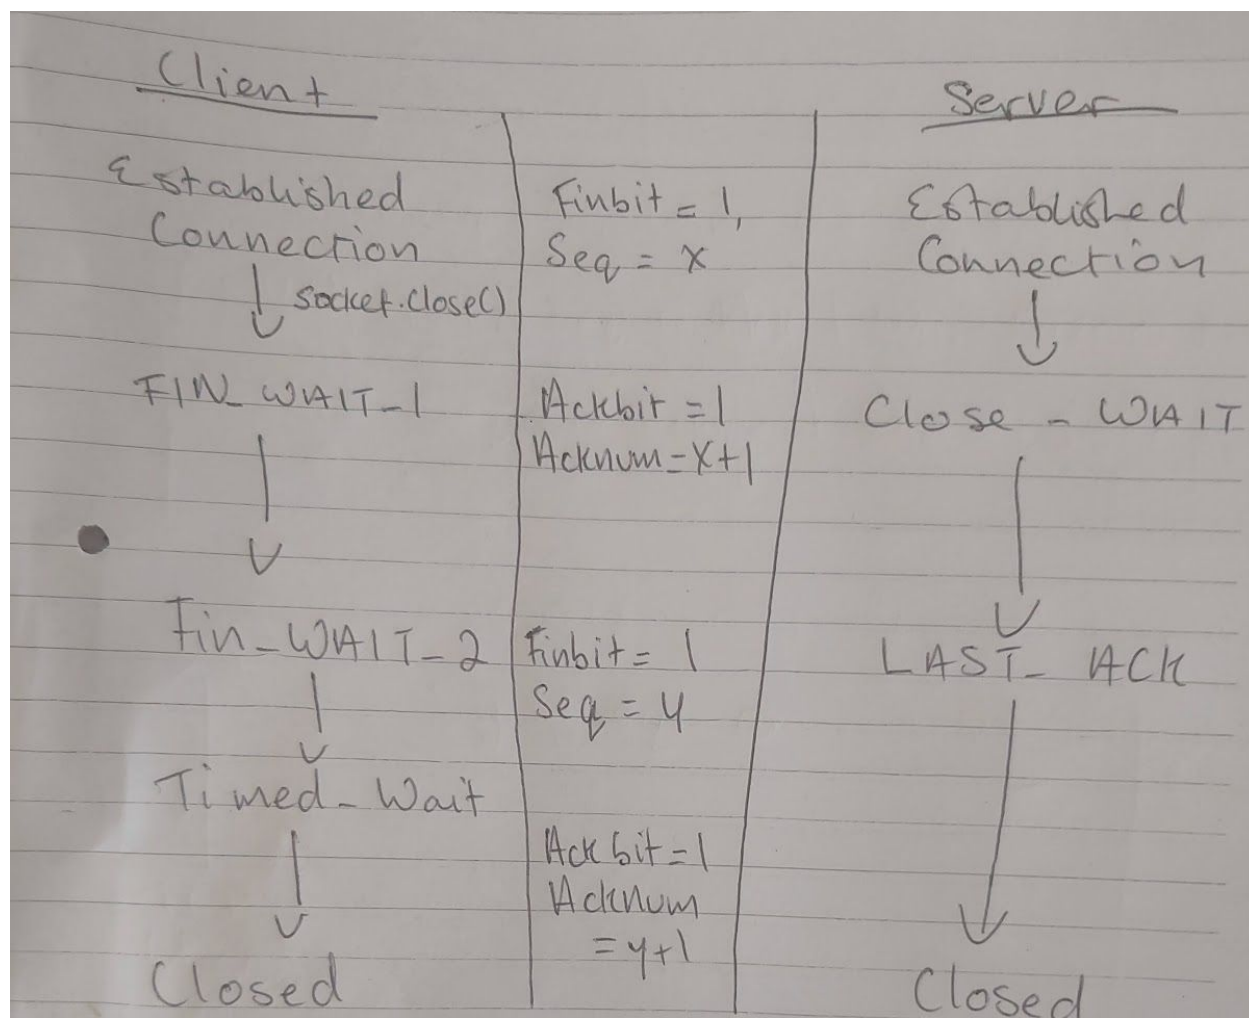 Client
Established
Connection
socket.close()
FIN_WAIT_1
Fin_WAIT_2
Timed_Wait
Closed
Finbit = 1,
Seq = x
Ackbit = 1
Acknum = x+1
Finbit = 1
Seq = y
Ack bit = 1
Acknum
= y+1
Server
Established
Connection
Close - WAIT
LAST_ ACK
Closed